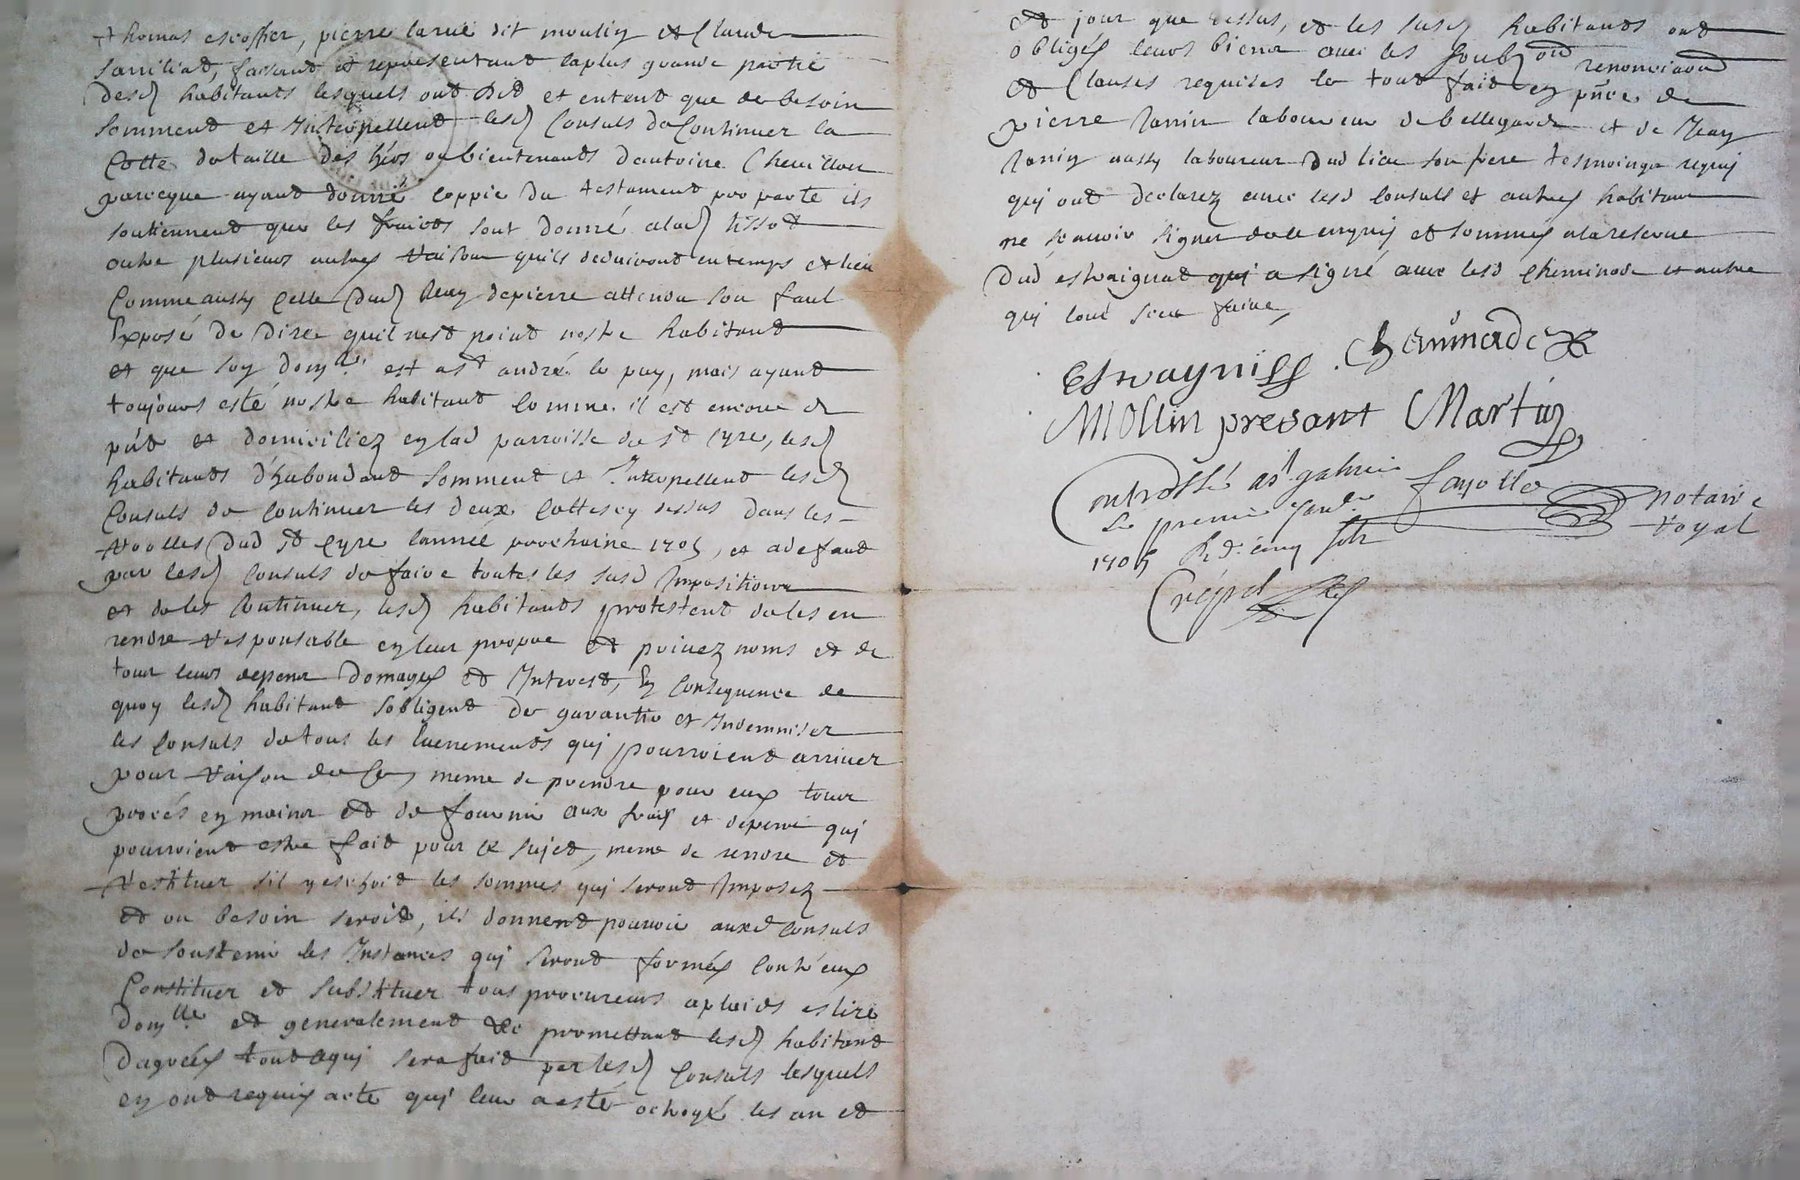 thomas escoffier, pierre larue dit moulin et Claude
Sanilial, faisant et representant laplus grande partie
desd habitants lesquels ont dit et entent que de besoin
somment et Interpellent lesd Consuls de Continuer la
Cotte de taille des hers ou bientenants dantoine Chevillon
parceque ayant donné coppie du testament par parte ils
soutiennent que les fruicts sont donné alad tissot
outre plusieurs autres raison quils deduiront en temps et lieu
Comme aussy Celle dud depierre attendu son faul
Exposé de dire quil nest point nostre habitant
et que son domlle est a st andré le puy, mais ayant
toujours esté nostre habitant Comme il est encore de
pnt et domiciliez en lad parroisse de st Cyre, lesd
habitants d'habondant somment et Interpellent lesd
Consuls de Continuer les deux Cottes cy dessus dans les
roolles dud st Cyre lannée prochaine 1705, et adefaut
par lesd Consuls de faire toutes les susd Impositions
et de les Continuer, lesd habitants protestent de les en
rendre responsable en leur propre et privez noms et de
tour leurs depens domages et Interest, En Consequence de
quoy lesd habitant sobligent de garantir et Indemniser
les Consuls de tous les Evenements qui pourroient arriver
pour raison de Ce, meme de prendre pour eux tour
procés en mains et de fournir aux frais et depens qui
pourroient estre fait pour Ce sujet, meme de rendre et
restituer sil y eschoit les sommes qui seront Imposez
et ou besoin seroit, ils donnent pouvoir auxd Consuls
de soustenir les Instances qui seront formés Contr'eux
Constituer et substituer tous procureurs aplaids eslire
domlle et generalement &c promettant lesd habitant
d'agréer tout aqui sera fait par lesd Consuls lesquels
en ont requis acte qui leur a esté octroyé les an et
et jour que dessus, et les susd habitants ont
obligés leurs biens avec les renonciaons
et Clauses requises le tout fait en pnce de
pierre Janin laboureur de bellegarde et de Jean
Janin aussy laboureur dud lieu son frere tesmoings requis
qui ont declarez avec lesd Consuls et autres habitans
ne scavoir signer de ce enquis et sommés ala reserve
dud estraignat qui a signé avec lesd Cheminade et autre
qui lont sceu faire
Cheminade
Mollin presant Martin
Controllé a st galmier fayolle notaire
le premier 
1705 Rd cinq sols royal
Crépet